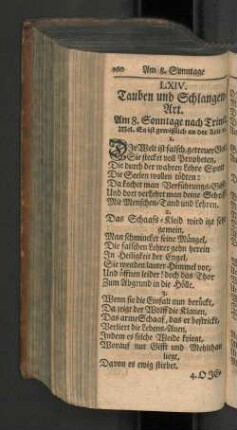 Am 8. Sonntage
LXIV.
Tauben und Schlangen
Art.
Am 8. Sonntage nach Trinit
Mel. Es ist gewißlich an der
1.
Die Welt ist falsch, getreuer
Sie stecket voll Propheten,
Die durch der wahren Lehre
Die Seelen wollen tödten:
Da kochet man Verführungs-
Und dort verkehrt man deine
Mit Menschen-Tand und Lehren.
2.
Das Schaafs-Kleid wird itzt sehr
gemein,
Man schmincket seine Mängel,
Die falschen Lehrer gehn herein
In Heiligkeit der Engel,
Sie wenden lauter Himmel vor,
Und öffnen leider! doch das Thor
Zum Abgrund in die Hölle.
3.
Wenn sie die Einfalt nun berückt,
Da zeigt der Wolff die Klauen,
Das arme Schaaf, das er bestrickt,
Verliert die Lebens-Auen,
Indem es solche Weide kriegt,
Worauf nur Gifft und Mehlthau
liegt,
Davon es ewig stirbet.